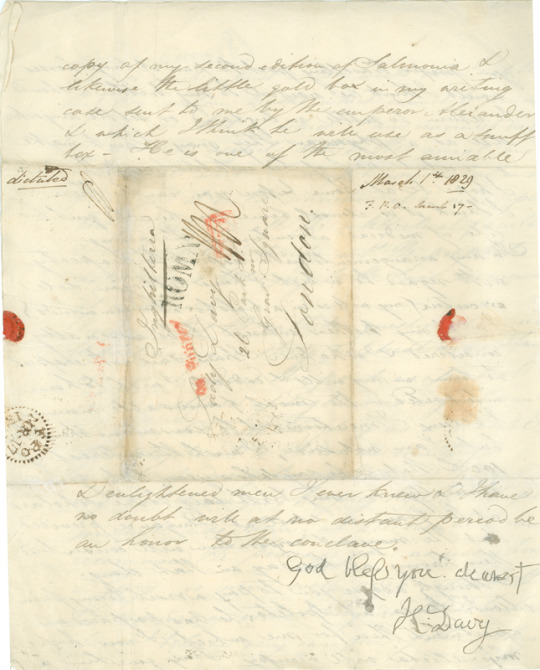 copy of my second edition of Salmonia &
likewise the little gold box in my writing
case sent to me by the emperor Alexander
& which I think he will use as a snuff
box – He is one of the most amiable
dictated
March 1st 1829
F.P.O. March 17–
Inghilterra
ROMA
Lady Davy
26 Park
Square
London.
FPO
& enlightened men I ever knew & I have
no doubt will at no distant period be
an honor to the conclave.
God bless you dearest
H. Davy